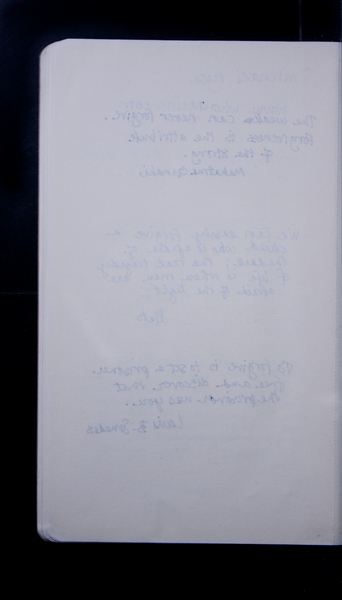 The weak can never forgive.
Forgiveness is the attribute
of the strong.
Mahatma Gandhi
We can easily forgive a
child who is afraid of
the dark; the real tragedy
of life is when men are
afraid of the light.
Plato
To forgive is to set a prisoner
free and discover that
the prisoner was you.
Lewis B. Smedes